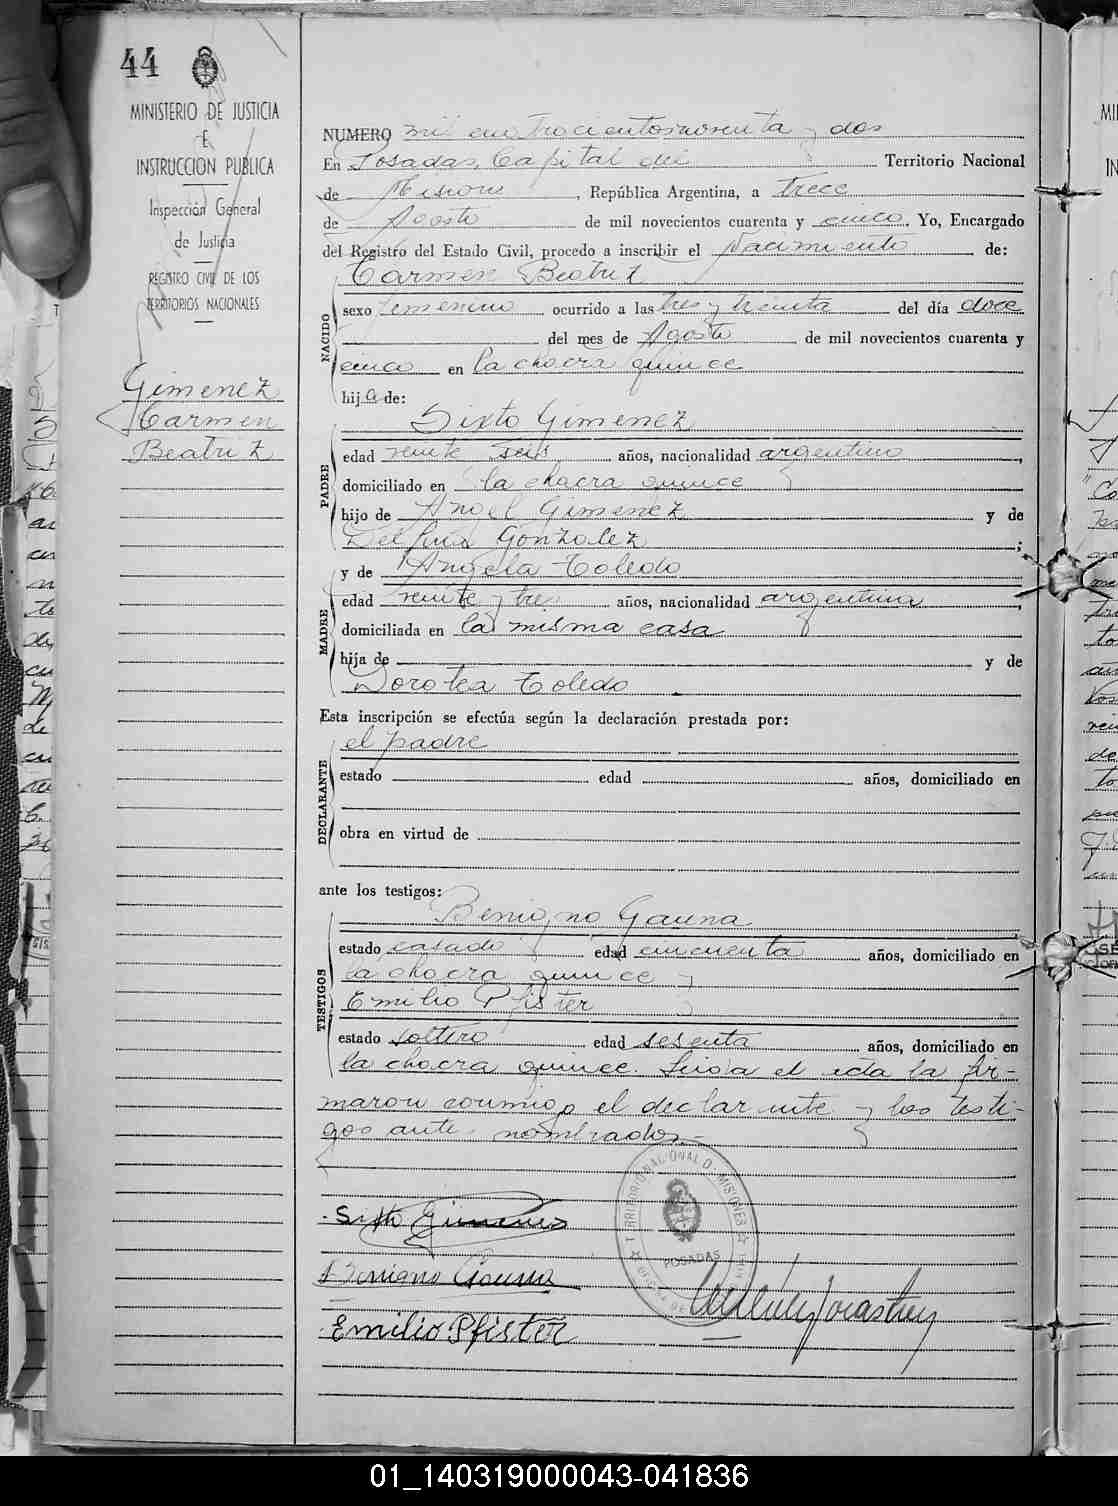 44
MINISTERIO DE JUSTICIA
E
INSTRUCCION PUBLICA
Inspección General
de Justicia
REGISTRO CIVIL DE LOS
TERRITORIOS NACIONALES
Gimenez
Carmen
Beatriz
NUMERO mil cuatrocientos noventa y dos
En Posadas, Capital del Territorio Nacional
de Misiones, República Argentina, a trece
de Agosto de mil novecientos cuarenta y cinco, Yo, Encargado
del Registro del Estado Civil, procedo a inscribir el Nacimiento de:
Carmen Beatriz
NACIDO
sexo femenino ocurrido a las tres y treinta del día doce
del mes de Agosto de mil novecientos cuarenta y
cinco en la chacra quince
hija de:
Sixto Gimenez
PADRE
edad veinte seis años, nacionalidad argentino,
domiciliado en la chacra quince
hijo de Angel Gimenez y de
Delfina Gonzalez;
y de Angela Toledo
MADRE
edad veinte y tres años, nacionalidad argentina,
domiciliada en la misma casa
hija de y de
Dorotea Toledo
Esta inscripción se efectúa según la declaración prestada por:
el padre
DECLARANTE
estado edad años, domiciliado en
obra en virtud de
ante los testigos:
Benigno Gauna
TESTIGOS
estado casado edad cincuenta años, domiciliado en
la chacra quince y
Emilio Pfister
estado soltero edad sesenta años, domiciliado en
la chacra quince. Leida el acta la fir-
maron conmigo el declarante y los testi-
gos ante nombrados.-
TERRITORIO NACIONAL D. MISIONES
POSADAS
Sixto Gimenez
Benigno Gauna
Emilio Pfister
01_140319000043-041836